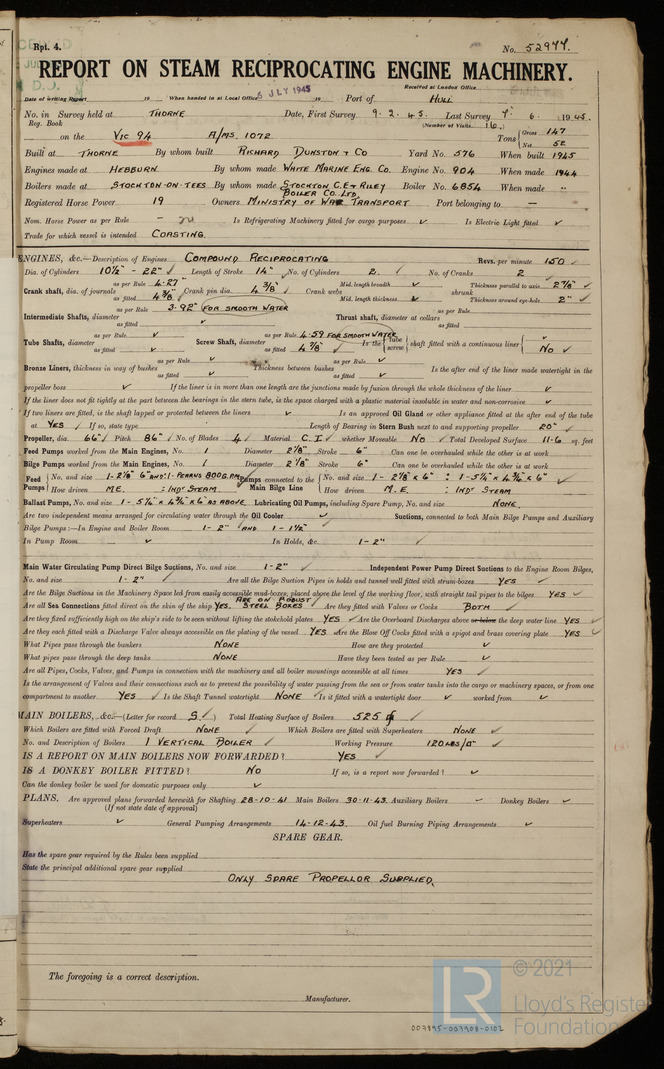 Rpt. 4.
No. 52977.
REPORT ON STEAM RECIPROCATING ENGINE MACHINERY.
Received at London Office
Date of writing Report 19 When handed in at Local Office 5 JULY 1945 19 Port of HULL
No. in Survey held at THORNE Date, First Survey 9. 2. 45. Last Survey 7. 6. 1945.
Reg. Book (Number of Visits 16.)
on the VIC 94 A/MS. 1072 Tons Gross 147 Net 52
Built at THORNE By whom built RICHARD DUNSTON & CO Yard No. 576 When built 1945
Engines made at HEBBURN By whom made WHITE MARINE ENG. CO. Engine No. 904 When made 1944
Boilers made at STOCKTON-ON-TEES By whom made STOCKTON C.E & RILEY BOILER CO. LTD. Boiler No. 6854 When made "
Registered Horse Power 19 Owners MINISTRY OF WAR TRANSPORT Port belonging to —
Nom. Horse Power as per Rule — Is Refrigerating Machinery fitted for cargo purposes ✓ Is Electric Light fitted ✓
Trade for which vessel is intended COASTING.
ENGINES, &c.—Description of Engines COMPOUND RECIPROCATING Revs. per minute 150
Dia. of Cylinders 10½" - 22" Length of Stroke 14" No. of Cylinders 2. No. of Cranks 2
Crank shaft, dia. of journals as per Rule 4.27" as fitted 4⅜" Crank pin dia. 4⅜" Crank webs Mid. length breadth ✓ Mid. length thickness ✓ shrunk Thickness parallel to axis 2⅞" Thickness around eye-hole 2"
Intermediate Shafts, diameter as per Rule 3.92" FOR SMOOTH WATER as fitted ✓ Thrust shaft, diameter at collars as per Rule as fitted
Tube Shafts, diameter as per Rule ✓ as fitted ✓ Screw Shaft, diameter as per Rule 4.59 FOR SMOOTH WATER as fitted 4⅞" Is the tube screw shaft fitted with a continuous liner ✓ No
Bronze Liners, thickness in way of bushes as per Rule ✓ as fitted Thickness between bushes as per Rule ✓ as fitted Is the after end of the liner made watertight in the
propeller boss ✓ If the liner is in more than one length are the junctions made by fusion through the whole length of the liner ✓
If the liner does not fit tightly at the part between the bearings in the stern tube, is the space charged with a plastic material insoluble in water and non-corrosive ✓
If two liners are fitted, is the shaft lapped or protected between the liners ✓ Is an approved Oil Gland or other appliance fitted at the after end of the tube
at YES If so, state type Length of Bearing in Stern Bush next to and supporting propeller 20"
Propeller, dia. 66" Pitch 86" No. of Blades 4 Material C.I. whether Moveable No Total Developed Surface 11.6 sq. feet
Feed Pumps worked from the Main Engines, No. 1 Diameter 2⅛" Stroke 6" Can one be overhauled while the other is at work
Bilge Pumps worked from the Main Engines, No. 1 Diameter 2⅛" Stroke 6" Can one be overhauled while the other is at work
Feed Pumps No. and size 1-2⅛" 6" AND: 1-PEARNS 800 G.P.H. Pumps connected to the Main Bilge Line No. and size 1-2⅛" x 6" : 1-5¼" x 4¾" x 6"
How driven M.E. : IND⁺ STEAM How driven M.E. : IND⁺ STEAM
Ballast Pumps, No. and size 1-5¼" x 4¾" x 6" AS ABOVE Lubricating Oil Pumps, including Spare Pump, No. and size NONE.
Are two independent means arranged for circulating water through the Oil Cooler ✓ Suctions, connected to both Main Bilge Pumps and Auxiliary
Bilge Pumps:—In Engine and Boiler Room 1-2" AND 1-1½"
In Pump Room ✓ In Holds, &c. 1-2"
Main Water Circulating Pump Direct Bilge Suctions, No. and size 1-2" Independent Power Pump Direct Suctions to the Engine Room Bilges,
No. and size 1-2" Are all the Bilge Suction Pipes in holds and tunnel well fitted with strum-boxes YES
Are the Bilge Suctions in the Machinery Space led from easily accessible mud-boxes, placed above the level of the working floor, with straight tail pipes to the bilges YES
Are all Sea Connections fitted direct on the skin of the ship YES. ARE ON ROBUST STEEL BOXES Are they fitted with Valves or Cocks BOTH
Are they fixed sufficiently high on the ship's side to be seen without lifting the stokehold plates YES Are the Overboard Discharges above or below the deep water line YES
Are they each fitted with a Discharge Valve always accessible on the plating of the vessel YES Are the Blow Off Cocks fitted with a spigot and brass covering plate YES
What Pipes pass through the bunkers NONE How are they protected ✓
What pipes pass through the deep tanks NONE Have they been tested as per Rule ✓
Are all Pipes, Cocks, Valves, and Pumps in connection with the machinery and all boiler mountings accessible at all times YES
Is the arrangement of Valves and their connections such as to prevent the possibility of water passing from the sea or from water tanks into the cargo or machinery spaces, or from one
compartment to another YES Is the Shaft Tunnel watertight NONE Is it fitted with a watertight door ✓ worked from ✓
MAIN BOILERS, &c.—(Letter for record S.) Total Heating Surface of Boilers 525
Which Boilers are fitted with Forced Draft NONE Which Boilers are fitted with Superheaters NONE
No. and Description of Boilers 1 VERTICAL BOILER Working Pressure 120 LBS/□"
IS A REPORT ON MAIN BOILERS NOW FORWARDED? YES
IS A DONKEY BOILER FITTED? NO If so, is a report now forwarded? ✓
Can the donkey boiler be used for domestic purposes only ✓
PLANS. Are approved plans forwarded herewith for Shafting 28-10-41 Main Boilers 30-11-43. Auxiliary Boilers — Donkey Boilers ✓
(If not state date of approval)
Superheaters ✓ General Pumping Arrangements 14-12-43. Oil fuel Burning Piping Arrangements ✓
SPARE GEAR.
Has the spare gear required by the Rules been supplied
State the principal additional spare gear supplied
ONLY SPARE PROPELLOR SUPPLIED.
The foregoing is a correct description.
Manufacturer.
LR © 2021
Lloyd's Register
Foundation
007895-007908-0102